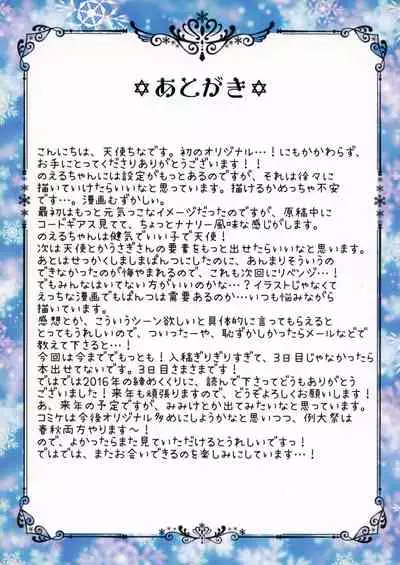 ✡あとがき✡
こんにちは、天使ちなです。初のオリジナル…!にもかかわらず、
お手にとってくださりありがとうございます!!
のえるちゃんには設定がもっとあるのですが、それは徐々に
描いていけたらいいなと思っています。描けるかめっちゃ不安
です…。漫画むずかしい。
最初はもっと元気っこなイメージだったのですが、原稿中に
コードギアス見てて、ちょっとナナリー風味な感じがします。
のえるちゃんは健気でいい子で天使!
次は天使とかうさぎさんの要素をもっと出せたらいいなと思います。
あとはせっかくしましまぱんつにしたのに、あんまりそういうの
できなかったのが悔やまれるので、これも次回にリベンジ…!
でもみんなはいてない方がいいのかな…?イラストじゃなくて
えっちな漫画でもぱんつは需要あるのか…いつも悩みながら
描いています。
感想とか、こういうシーン欲しいと具体的に言ってもらえると
とってもうれしいので、ついったーや、恥ずかしかったらメールなどで
教えて下さると…!
今回は今まででもっとも!入稿ぎりぎりすぎて、3日目じゃなかったら
本出せてないです。3日目さまさまです!
ではでは2016年の締めくくりに、読んで下さってどうもありがとう
ございました!来年も頑張りますので、どうぞよろしくお願いします!
あ、来年の予定ですが、みみけとか出てみたいなと思っています。
コミケは今後オリジナル多めにしようかなと思いつつ、例大祭は
春秋両方やります〜!
ので、よかったらまた見ていただけるとうれしいですっ!
ではでは、またお会いできるのを楽しみにしています…!